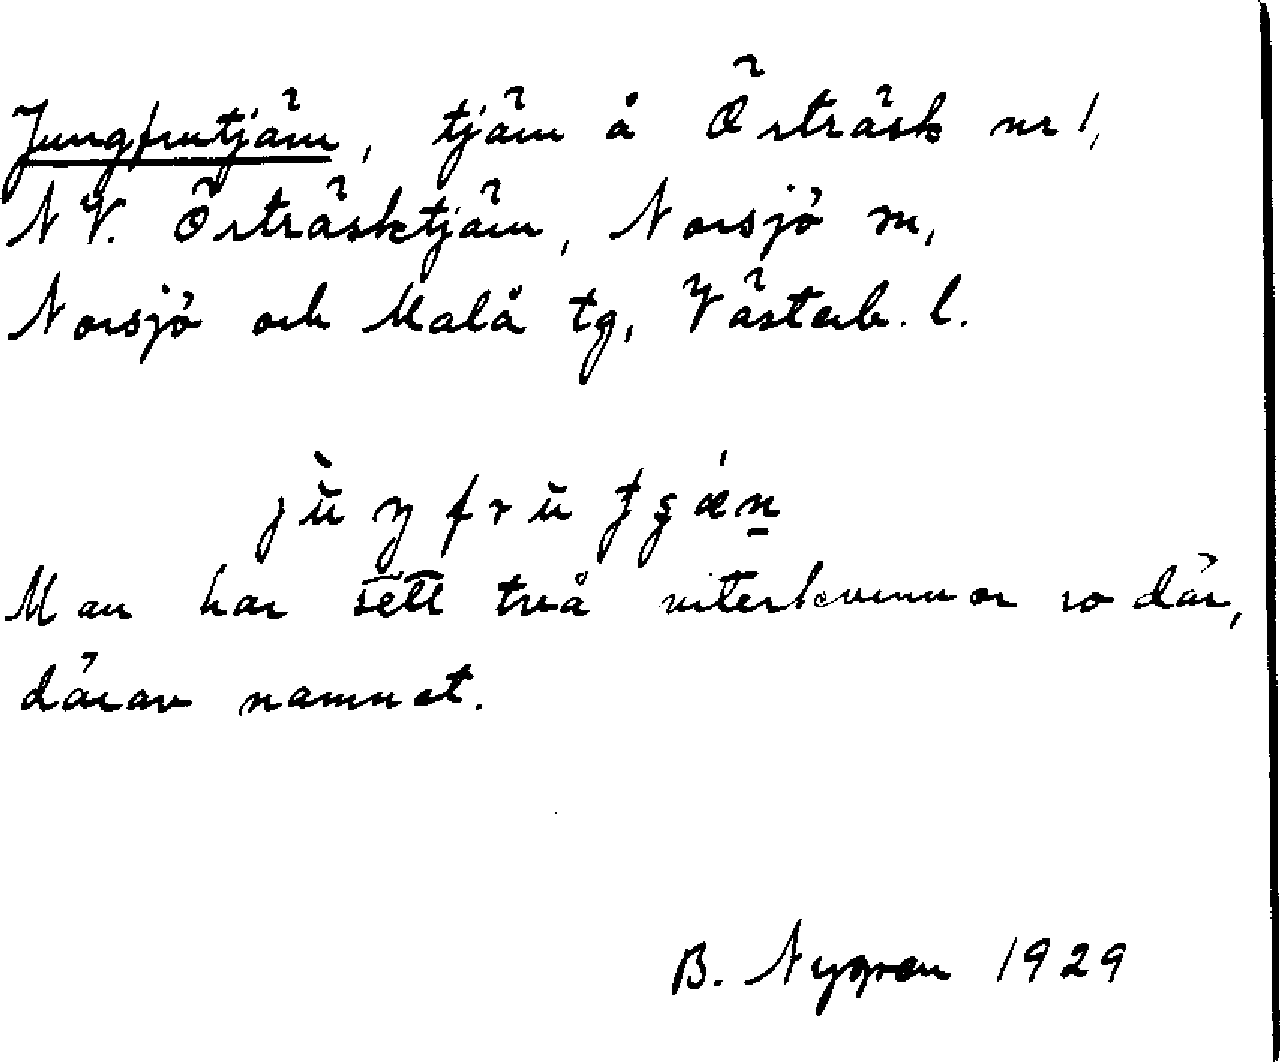 Jungfrutjärn, tjärn å Örträsk nr 1,
NV. Örträsktjärn, Norsjö sn,
Norsjö och Malå tg, Västerb. l.
jùŋfrŭ tʂǽn
Man har sett två viterkvinnor ro där,
därav namnet.
B. Nygren 1929